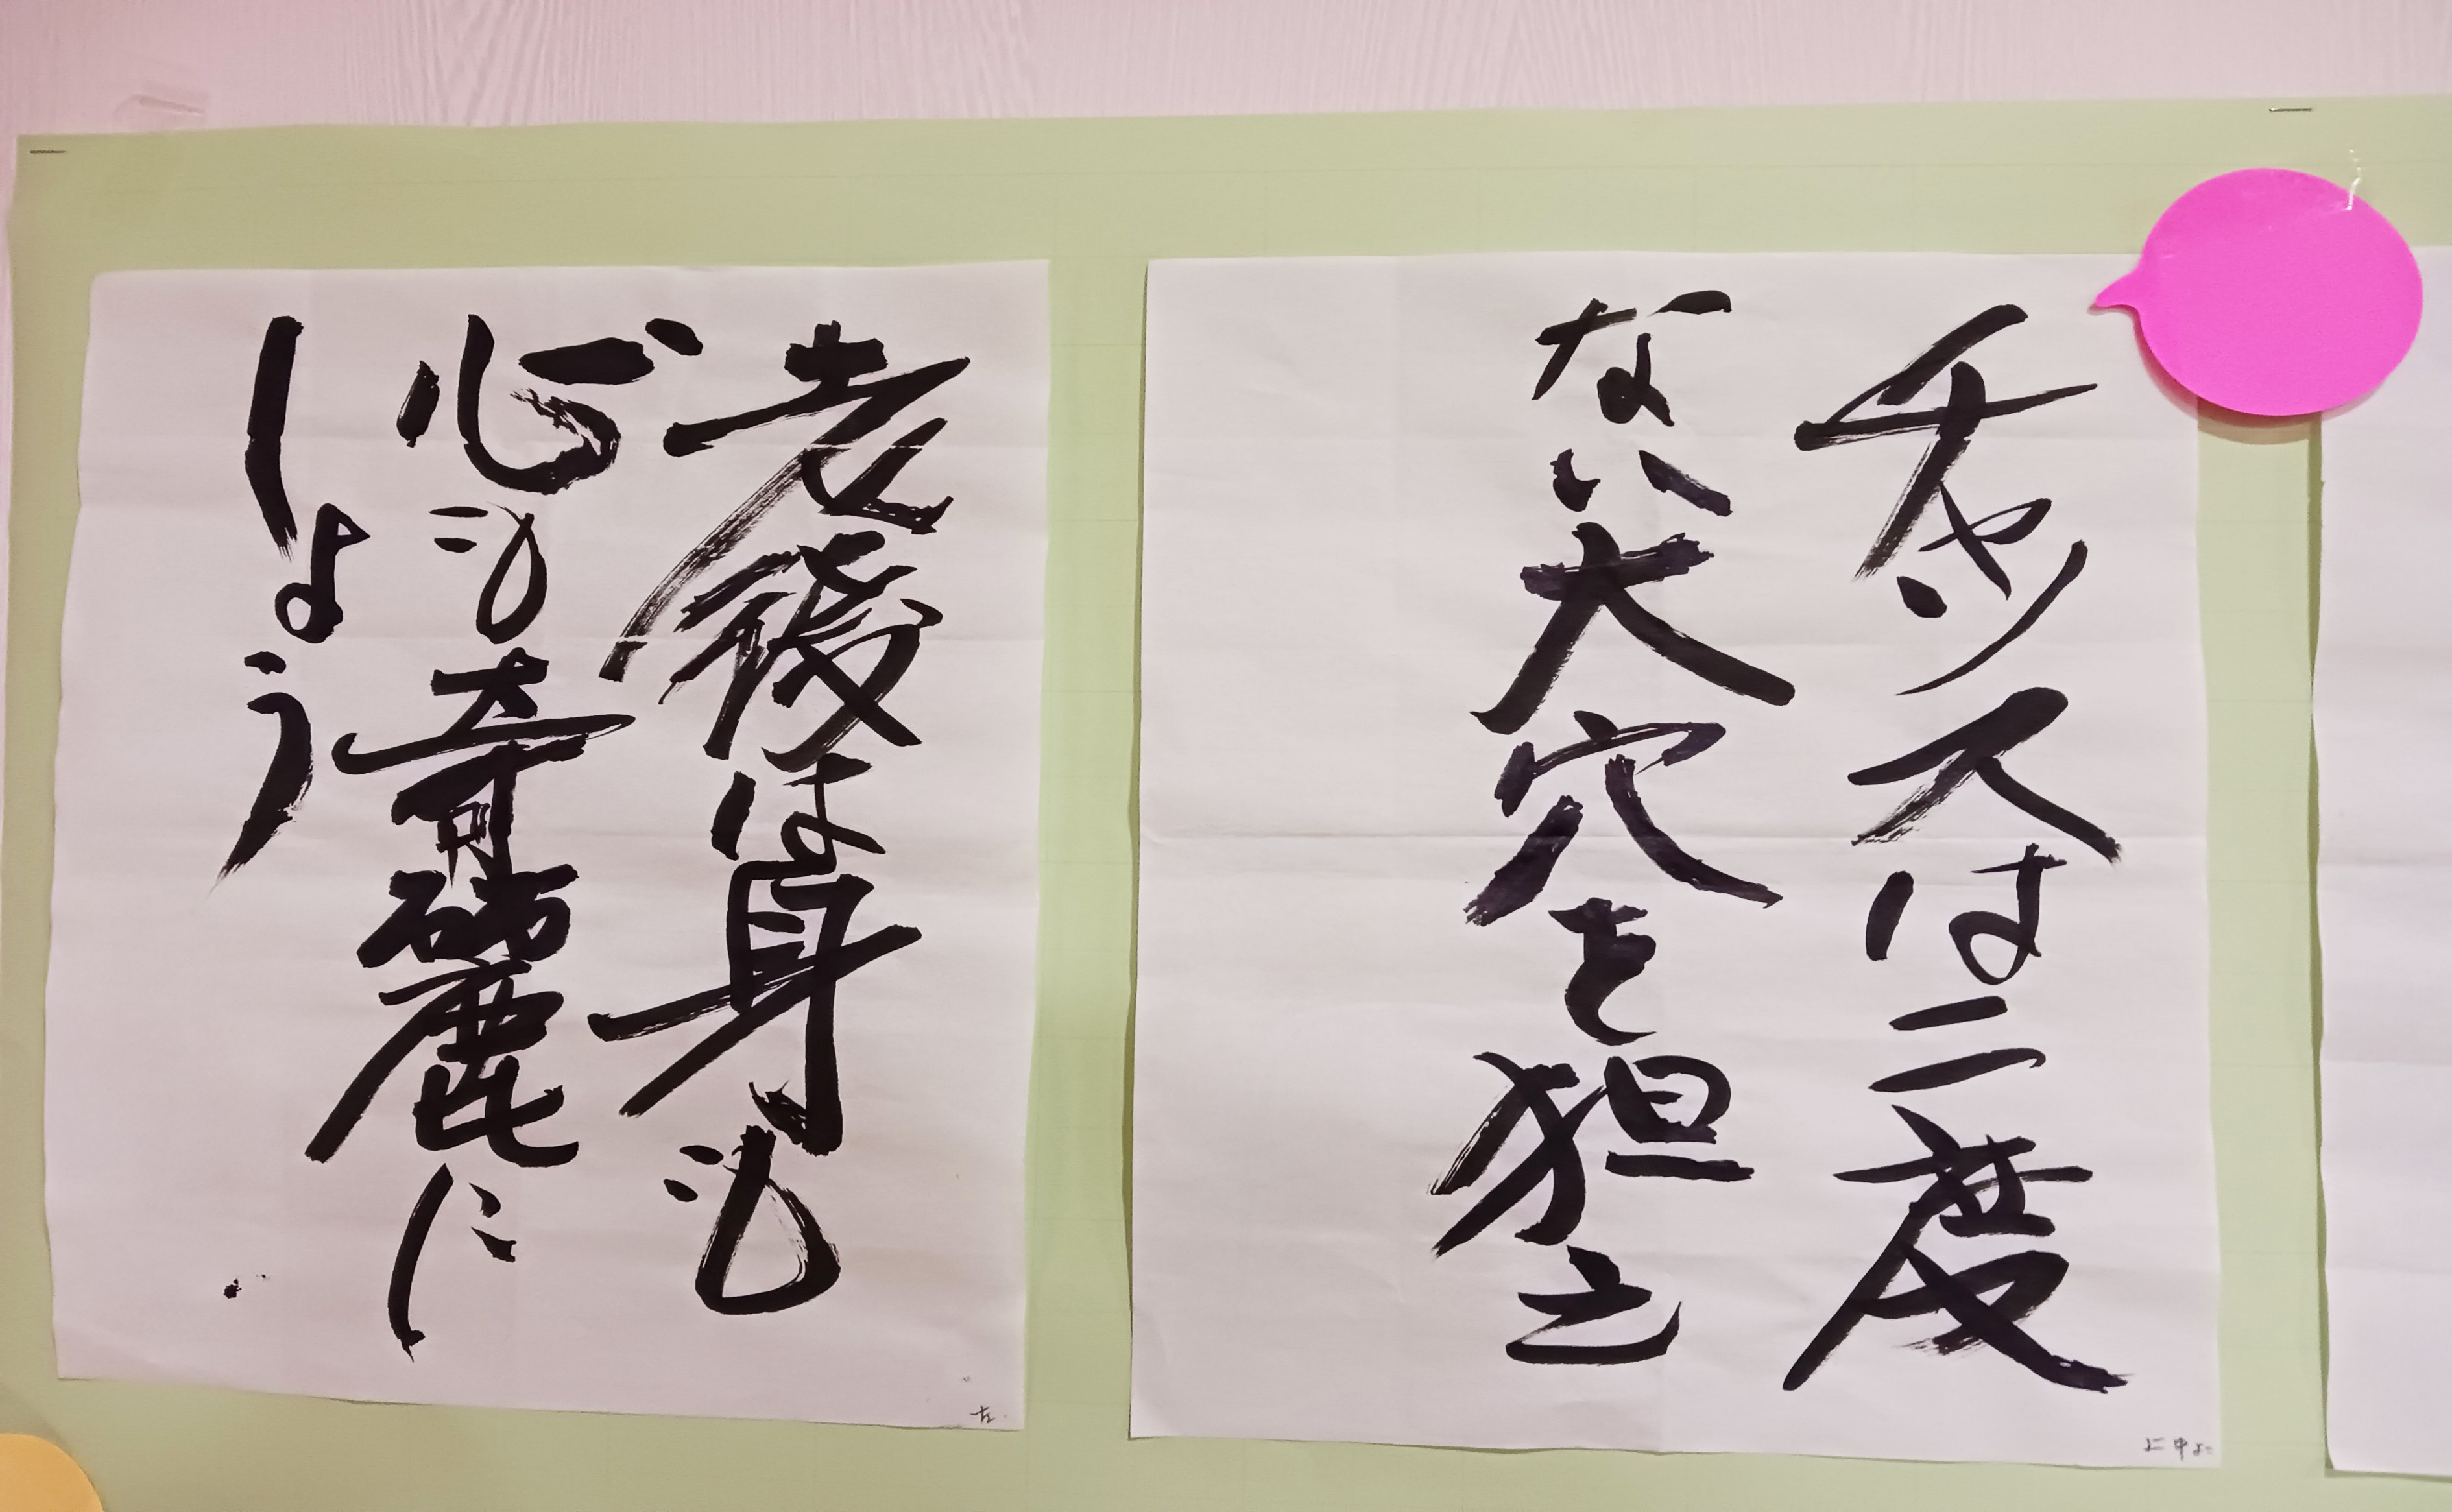 チャンスは二度
ない大穴を狙え
老後は身も
心も奇麗に
しょう